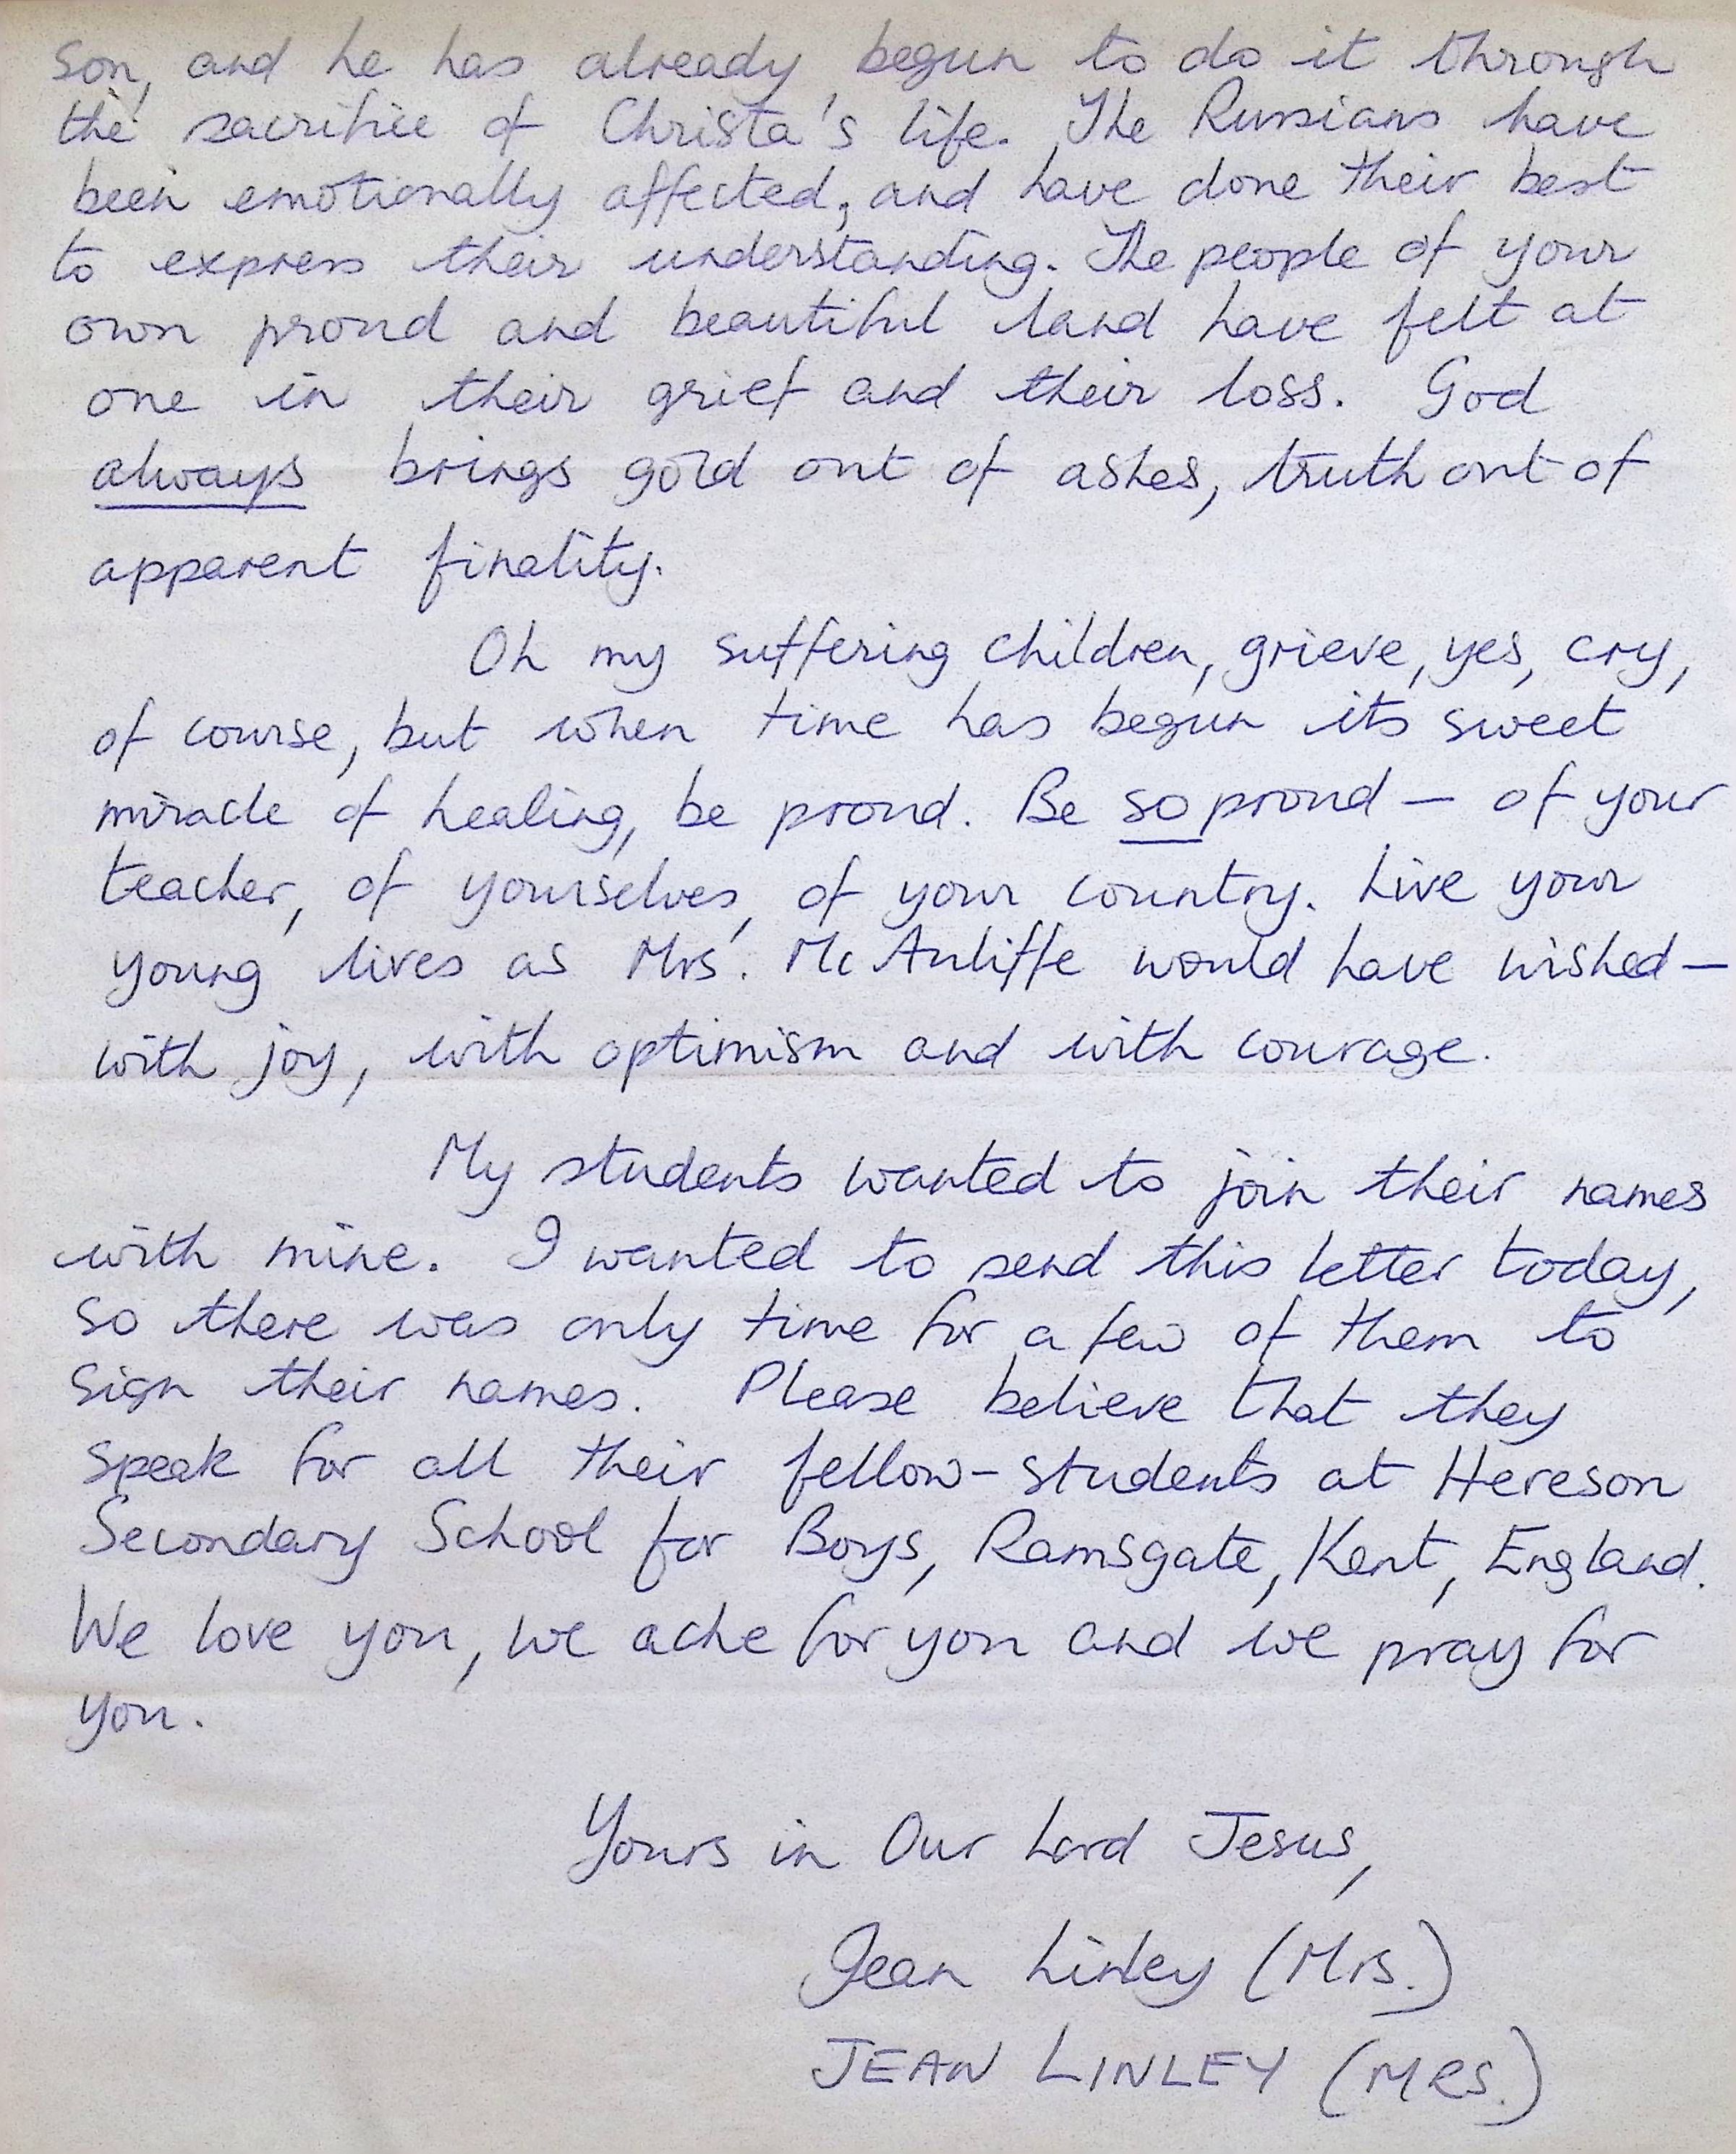 son, and he has already begun to do it through
the sacrifice of Christa's life. The Russians have
been emotionally affected, and have done their best
to express their understanding. The people of your
own proud and beautiful land have felt at
one in their grief and their loss. God
always brings gold out of ashes, truth out of
apparent finality.
Oh my suffering children, grieve, yes, cry,
of course, but when time has begun its sweet
miracle of healing, be proud. Be so proud — of your
teacher, of yourselves, of your country. Live your
young lives as Mrs. McAuliffe would have wished —
with joy, with optimism and with courage.
My students wanted to join their names
with mine. I wanted to send this letter today,
so there was only time for a few of them to
sign their names. Please believe that they
speak for all their fellow-students at Hereson
Secondary School for Boys, Ramsgate, Kent, England.
We love you, we ache for you and we pray for
you.
Yours in Our Lord Jesus,
Jean Linley (Mrs.)
JEAN LINLEY (MRS.)